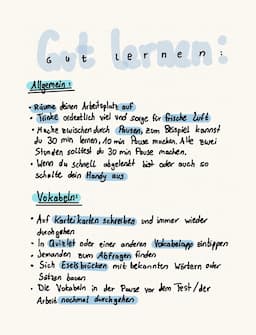 Gut lernen:
Gut lernen:
Allgemein:
• Räume deinen Arbeitsplatz auf
• Trinke ordentlich viel und sorge für frische Luft
• Mache zwischendurch Pausen, zum Beispiel kannst
du 30 min lernen, 10 min Pause machen. Alle zwei
Stunden solltest du 30 min Pause machen.
• Wenn du schnell abgelenkt bist oder auch so
schalte dein Handy aus
Vokabeln:
• Auf Karteikarten schreiben und immer wieder
durchgehen
• In Quizlet oder einer anderen Vokabelapp eintippen
• Jemanden zum Abfragen finden
• Sich Eselsbrücken mit bekannten Wörtern oder
Sätzen bauen
• Die Vokabeln in der Pause vor dem Test/der
Arbeit nochmal durchgehen